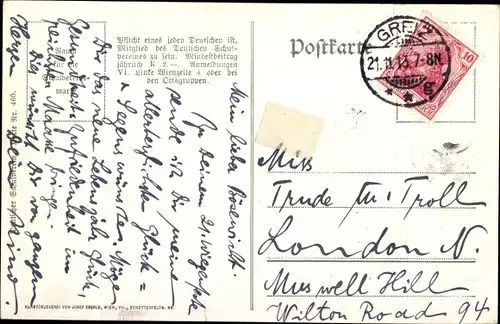 Pflicht eines jeden Deutschen ist,
Mitglied des Deutschen Schul-
vereines zu sein. Mindestbeitrag
jährlich K 2.—. Anmeldungen
VI. Linke Wienzeile 4 oder bei
den Ortsgruppen.
Postkarte
GREIZ
21.11.13. 7-8N
g
10
Mein liebe Bösewicht.
Zu Deinem 21. Wiegenfeste
sende ich Dir meine
allerherzlichsten Glück-
u. Segenswünsche. Möge
Dir das neue Lebensjahr Glück,
Zufriedenheit im
reichsten Maase bringen.
Dies wünscht Dir von ganzem
Herzen
Miss
Trude Troll
London N.
Muswell Hill
Wilton Road 94
KUNSTDRUCKEREI VON JOSEF EBERLE, WIEN, VII.